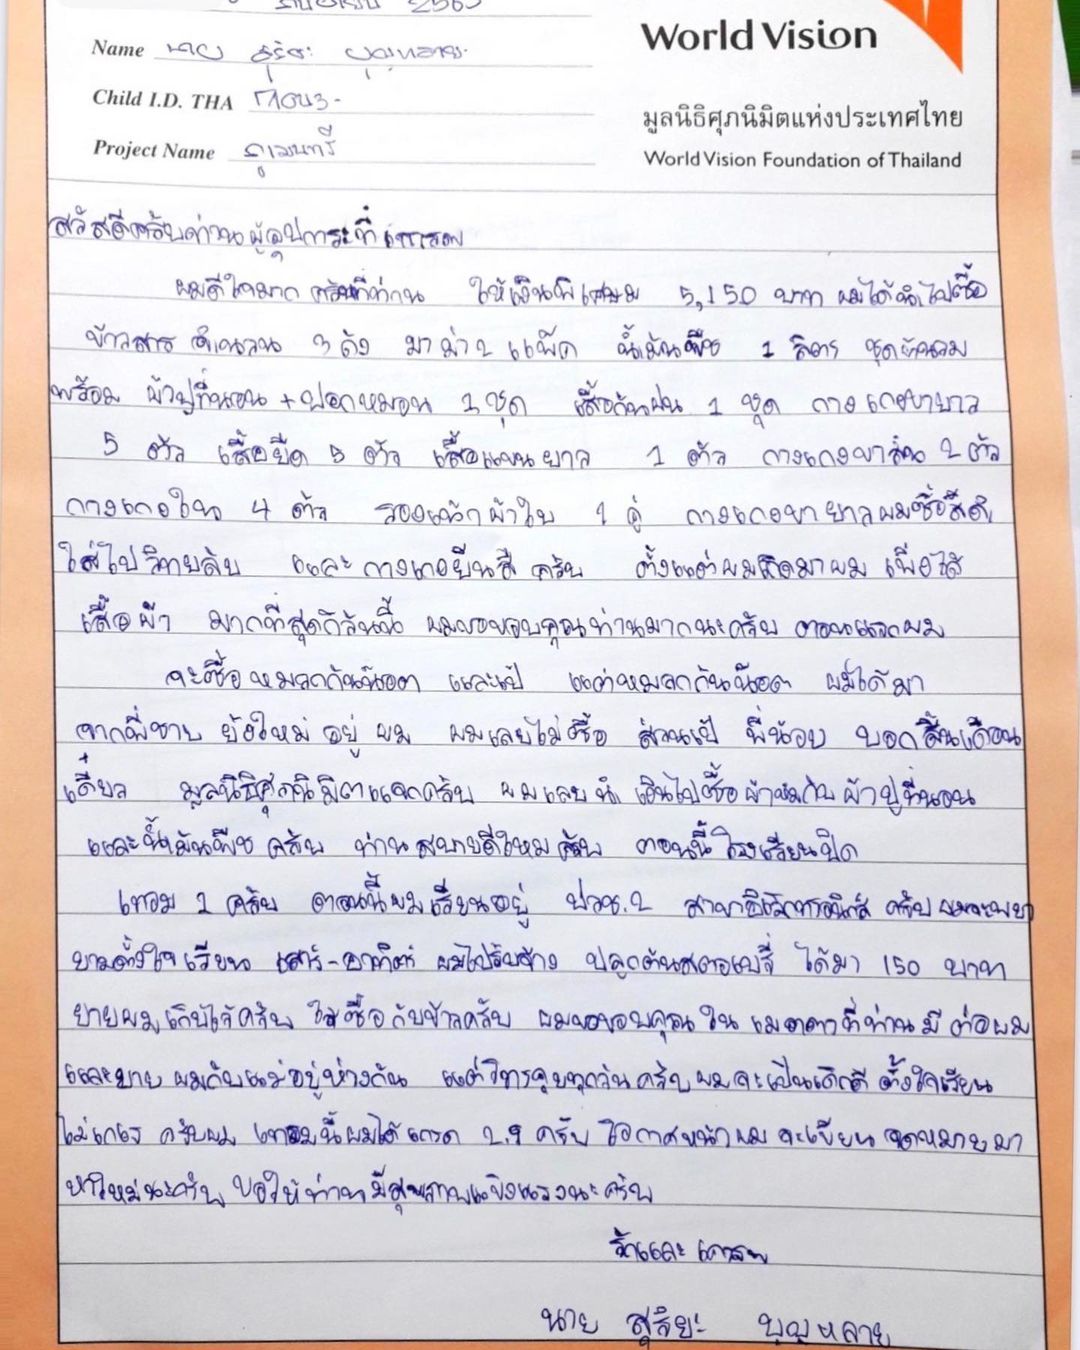 2563
World Vision
Name นาย สุริยะ บุญหลาย
Child I.D. THA
มูลนิธิศุภนิมิตแห่งประเทศไทย
Project Name ภูเมนทรี
World Vision Foundation of Thailand
สวัสดีครับท่านผู้อุปการะที่เคารพ
ผมดีใจมาก ครับที่ท่าน ให้เงินพิเศษผม 5,150 บาท ผมได้นำไปซื้อ
ข้าวสาร จำนวน 3 ถัง มาม่า 2 แพ็ค น้ำมันพืช 1 ลิตร ชุดผ้านวม
พร้อม ผ้าปูที่นอน + ปลอกหมอน 1 ชุด เสื้อกันฝน 1 ชุด กางเกงขายาว
5 ตัว เสื้อยืด 5 ตัว เสื้อแขนยาว 1 ตัว กางเกงขาสั้น 2 ตัว
กางเกงใน 4 ตัว รองเท้าผ้าใบ 1 คู่ กางเกงขายาวผมซื้อสีดำ
ใส่ไปวิทยาลัย และกางเกงยีนส์ ครับ ตั้งแต่ผมเกิดมาผม เพิ่งได้
เสื้อผ้า มากที่สุดก็วันนี้ ผมขอขอบคุณท่านมากนะครับ ตอนแรกผม
จะซื้อหมวกกันน็อค และเป้ แต่หมวกกันน็อค ผมได้มา
จากพี่ชาย ยังใหม่อยู่ ผม ผมเลยไม่ซื้อ ส่วนเป้ พี่น้อย บอกสิ้นเดือน
เดี๋ยว มูลนิธิศุภนิมิตแจกครับ ผมเลยนำ เงินไปซื้อผ้าห่มกับผ้าปูที่นอน
และน้ำมันพืช ครับ ท่านสบายดีไหมครับ ตอนนี้โรงเรียนปิด
เทอม 1 ครับ ตอนนี้ผมเรียนอยู่ ปวช.2 สาขาอิเล็กทรอนิกส์ ครับ ผมจะพยา
ยามตั้งใจเรียน เสาร์-อาทิตย์ ผมไปรับจ้าง ปลูกต้นสตอเบอรี่ ได้มา 150 บาท
ยายผมเก็บไว้ครับ ไว้ซื้อกับข้าวครับ ผมขอขอบคุณใน เมตตาที่ท่านมี ต่อผม
และยาย ผมกับแม่อยู่ห่างกัน แต่โทรคุยทุกวันครับ ผมจะเป็นเด็กดี ตั้งใจเรียน
ไม่เกเร ครับผม เทอมนี้ผมได้เกรด 2.9 ครับ โอกาสหน้าผม จะเขียน จดหมายมา
หาใหม่นะครับ ขอให้ท่านมีสุขภาพแข็งแรงนะครับ
รักและเคารพ
นาย สุริยะ บุญหลาย